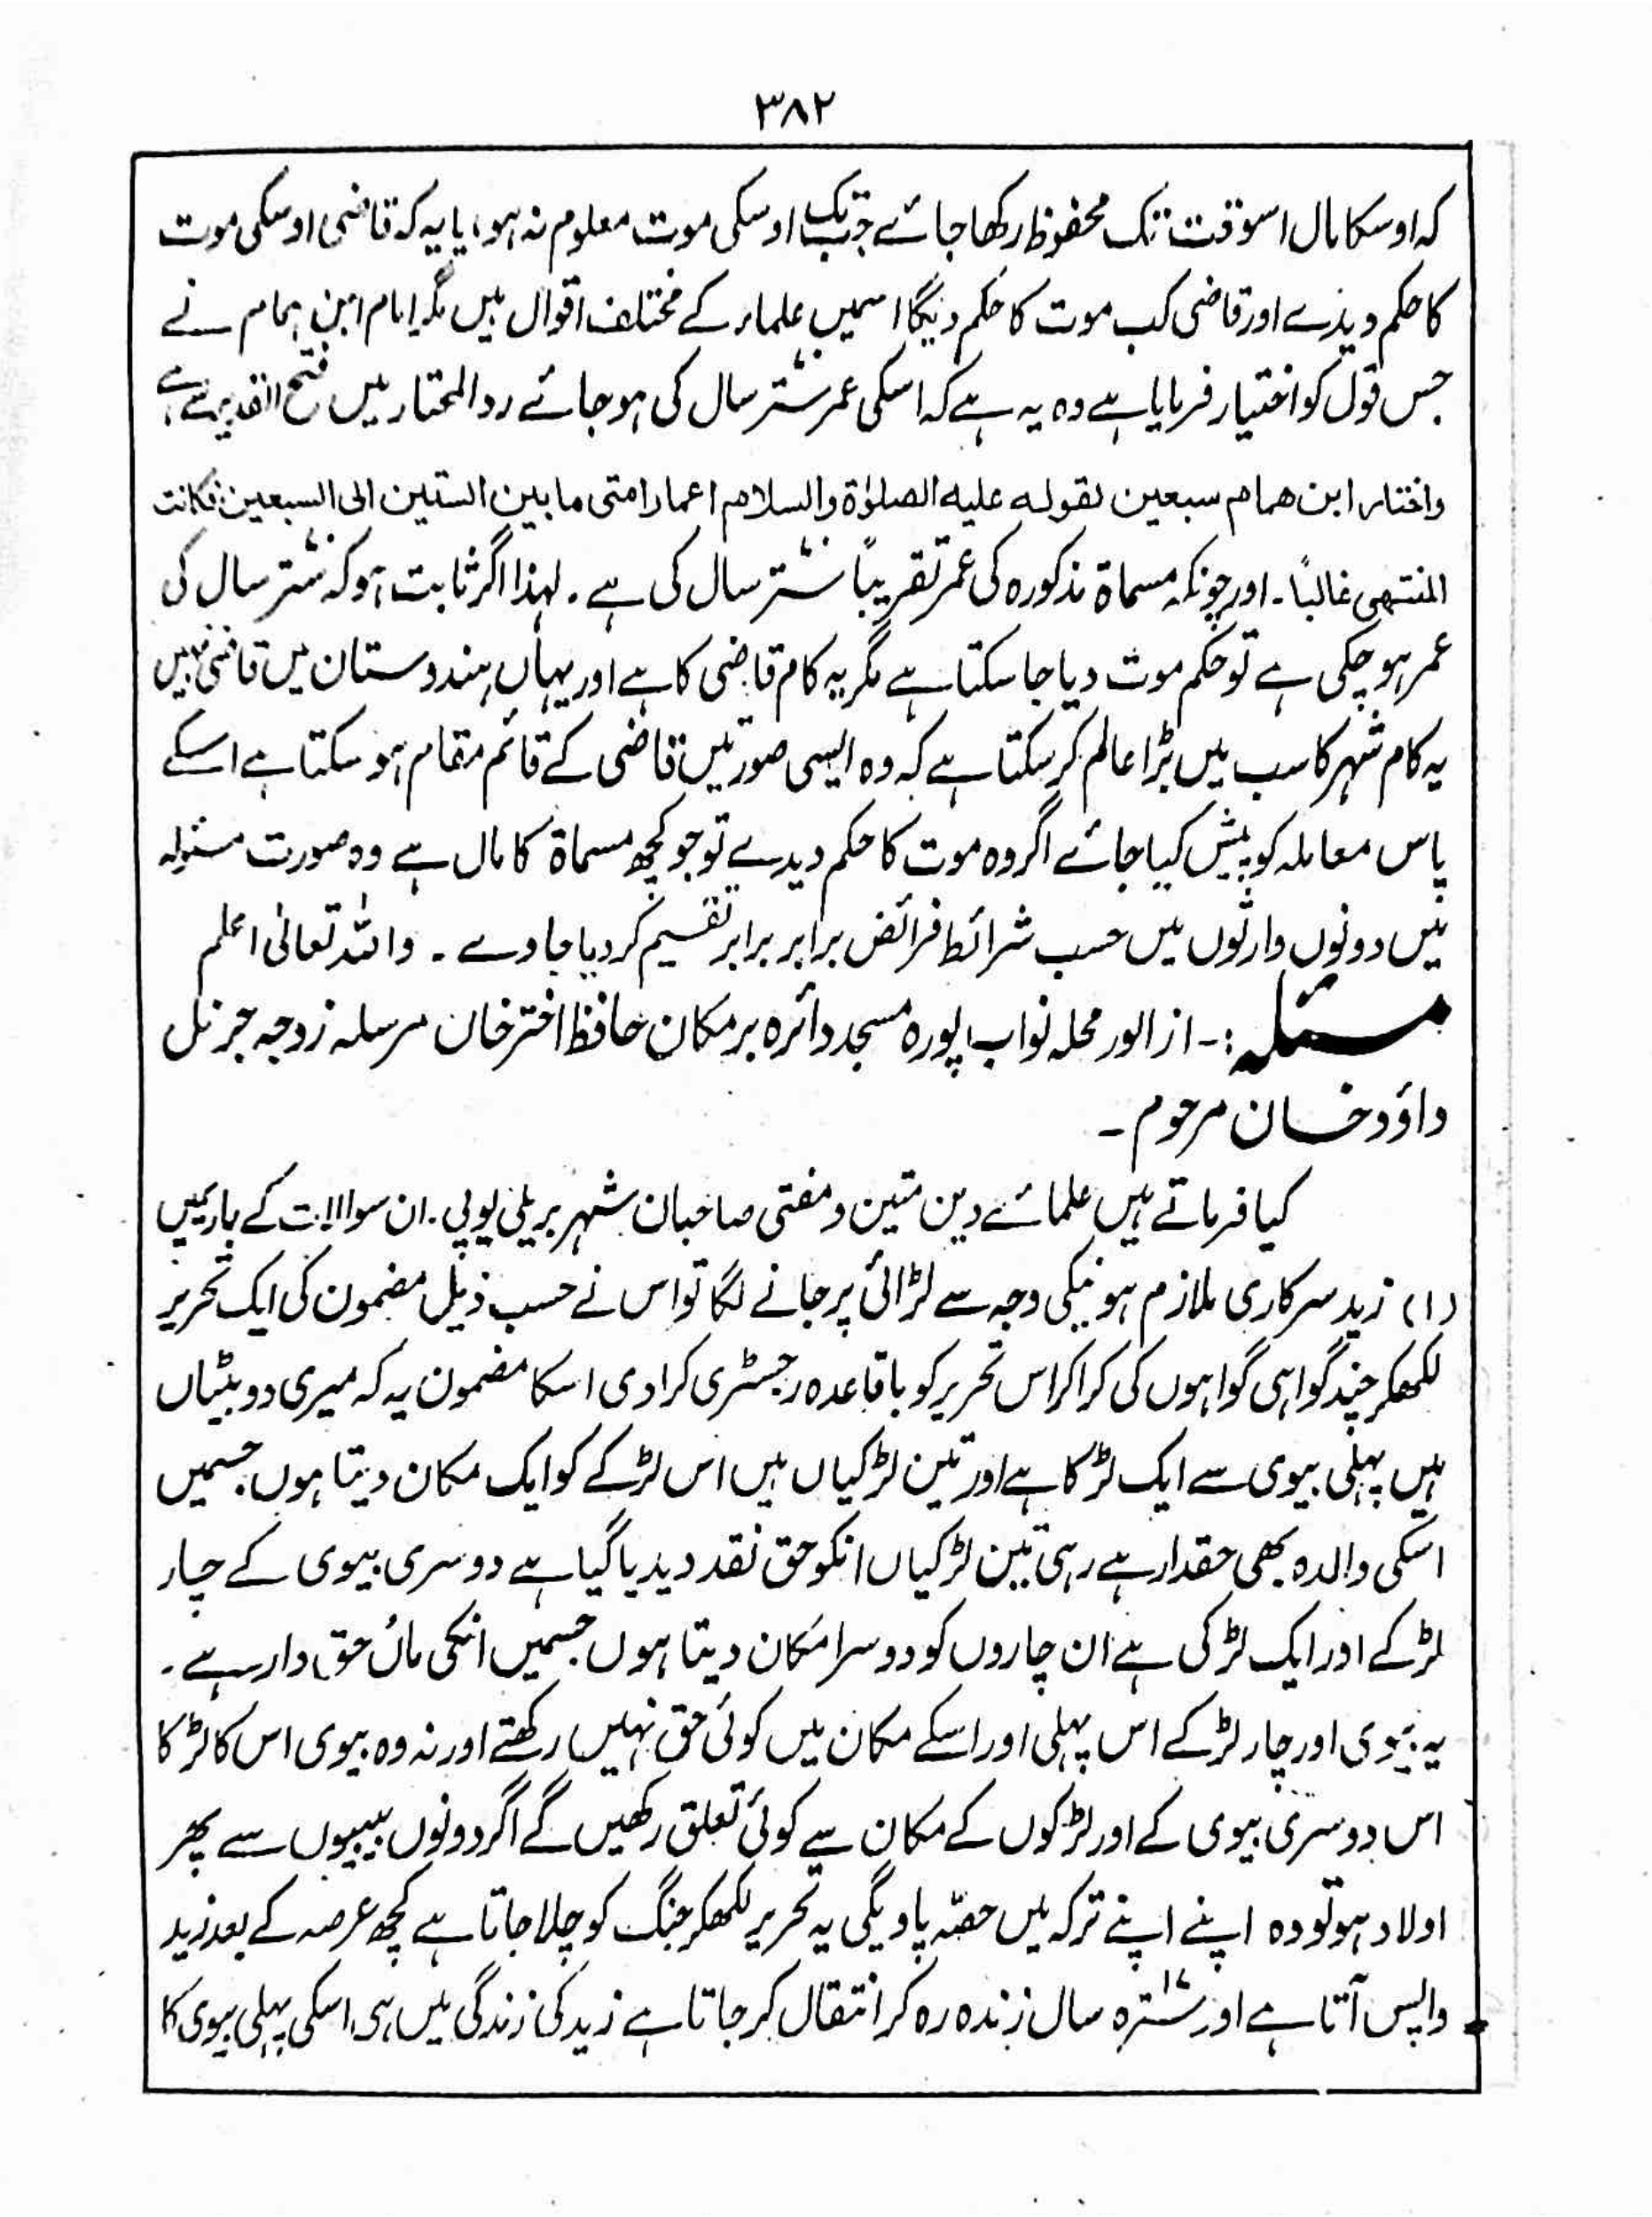 ۳۸۲
کہ اوسکا مال اسوقت تک محفوظ رکھا جائے جبتک اوسکی موت معلوم نہ ہو، یا یہ کہ قاضی اوسکی موت
کا حکم دیدے اور قاضی کب موت کا حکم دیگا اسمیں علماء کے مختلف اقوال ہیں مگر امام ابن ہمام نے
جس قول کو اختیار فرمایا ہے وہ یہ ہے کہ اسکی عمر ستر سال کی ہوجائے رد المحتار میں فتح القدیر سے ہے
واختار ابن همام سبعين لقوله عليه الصلوٰة والسلام اعمار امتى ما بين الستين الى السبعين فكانت
المنتهى غالبًا۔ اور چونکہ مسماۃ مذکورہ کی عمر تقریبًا ستر سال کی ہے۔ لہذا اگر ثابت ہو کہ ستر سال کی
عمر ہوچکی ہے تو حکم موت دیا جاسکتا ہے مگر یہ کام قاضی کا ہے اور یہاں ہندوستان میں قاضی نہیں
یہ کام شہر کا سب میں بڑا عالم کرسکتا ہے کہ وہ ایسی صورتمیں قاضی کے قائم مقام ہو سکتا ہے اسکے
پاس معاملہ کو پیش کیا جائے اگر وہ موت کا حکم دیدے تو جو کچھ مسماۃ کا مال ہے وہ صورت مسئولہ
میں دونوں وارثوں میں حسب شرائط فرائض برابر برابر تقسیم کردیا جاوے ۔ واللہ تعالیٰ اعلم
مسئلہ :۔ از الور محلہ نواب پورہ مسجد دائرہ بر مکان حافظ اختر خاں مرسلہ زوجہ جرنل
داؤد خان مرحوم ۔
کیا فرماتے ہیں علمائے دین متین و مفتی صاحبان شہر بریلی یوپی ۔ ان سوالات کے باریمیں
(۱) زید سرکاری ملازم ہونیکی وجہ سے لڑائی پر جانے لگا تو اس نے حسب ذیل مضمون کی ایک تحریر
لکھکر چند گواہی گواہوں کی کراکر اس تحریر کو باقاعدہ رجسٹری کرادی اسکا مضمون یہ کہ میری دو بیبیاں
ہیں پہلی بیوی سے ایک لڑکا ہے اور تین لڑکیاں ہیں اس لڑکے کو ایک مکان دیتا ہوں جسمیں
اسکی والدہ بھی حقدار ہے رہی تین لڑکیاں انکو حق نقد دیدیا گیا ہے دوسری بیوی کے چار
لڑکے اور ایک لڑکی ہے ان چاروں کو دوسرا مکان دیتا ہوں جسمیں انکی ماں حق دار ہے ۔
یہ بیوی اور چار لڑکے اس پہلی اور اسکے مکان میں کوئی حق نہیں رکھتے اور نہ وہ بیوی اس کا لڑکا
اس دوسری بیوی کے اور لڑکوں کے مکان سے کوئی تعلق رکھیں گے اگر دونوں بیبیوں سے پھر
اولاد ہو تو وہ اپنے اپنے ترکہ میں حصّہ پاویگی یہ تحریر لکھکر جنگ کو چلا جاتا ہے کچھ عرصہ کے بعد زید
واپس آتا ہے اور سترہ ۱۷ سال زندہ رہ کر انتقال کر جاتا ہے زید کی زندگی میں ہی اسکی پہلی بیوی کا